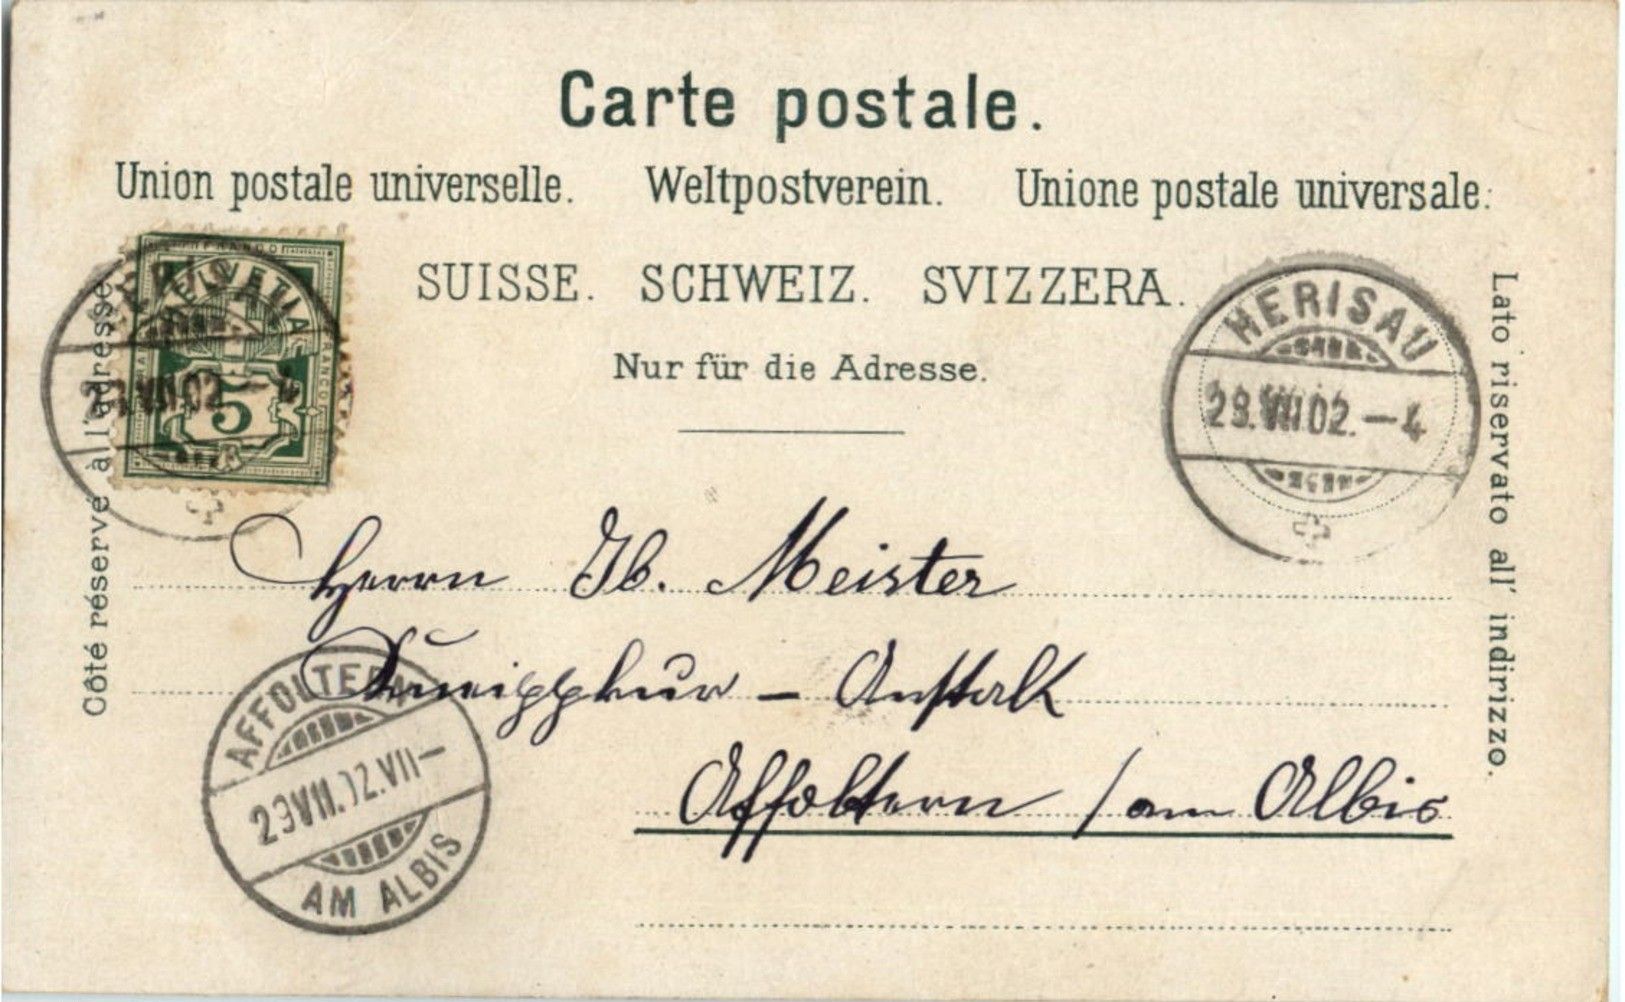 Carte postale.
Union postale universelle. Weltpostverein. Unione postale universale.
SUISSE. SCHWEIZ. SVIZZERA.
Nur für die Adresse.
Côté réservé à l'adresse
Lato riservato all' indirizzo.
FRANCO
HELVETIA
FRANCO
5
HERISAU
29.VII.02.–4
HERISAU
29.VII.02.–4
Herrn Jb. Meister
Kneippkur – Anstalt
Affoltern / am Albis
AFFOLTERN
29.VII.02.VII–
AM ALBIS